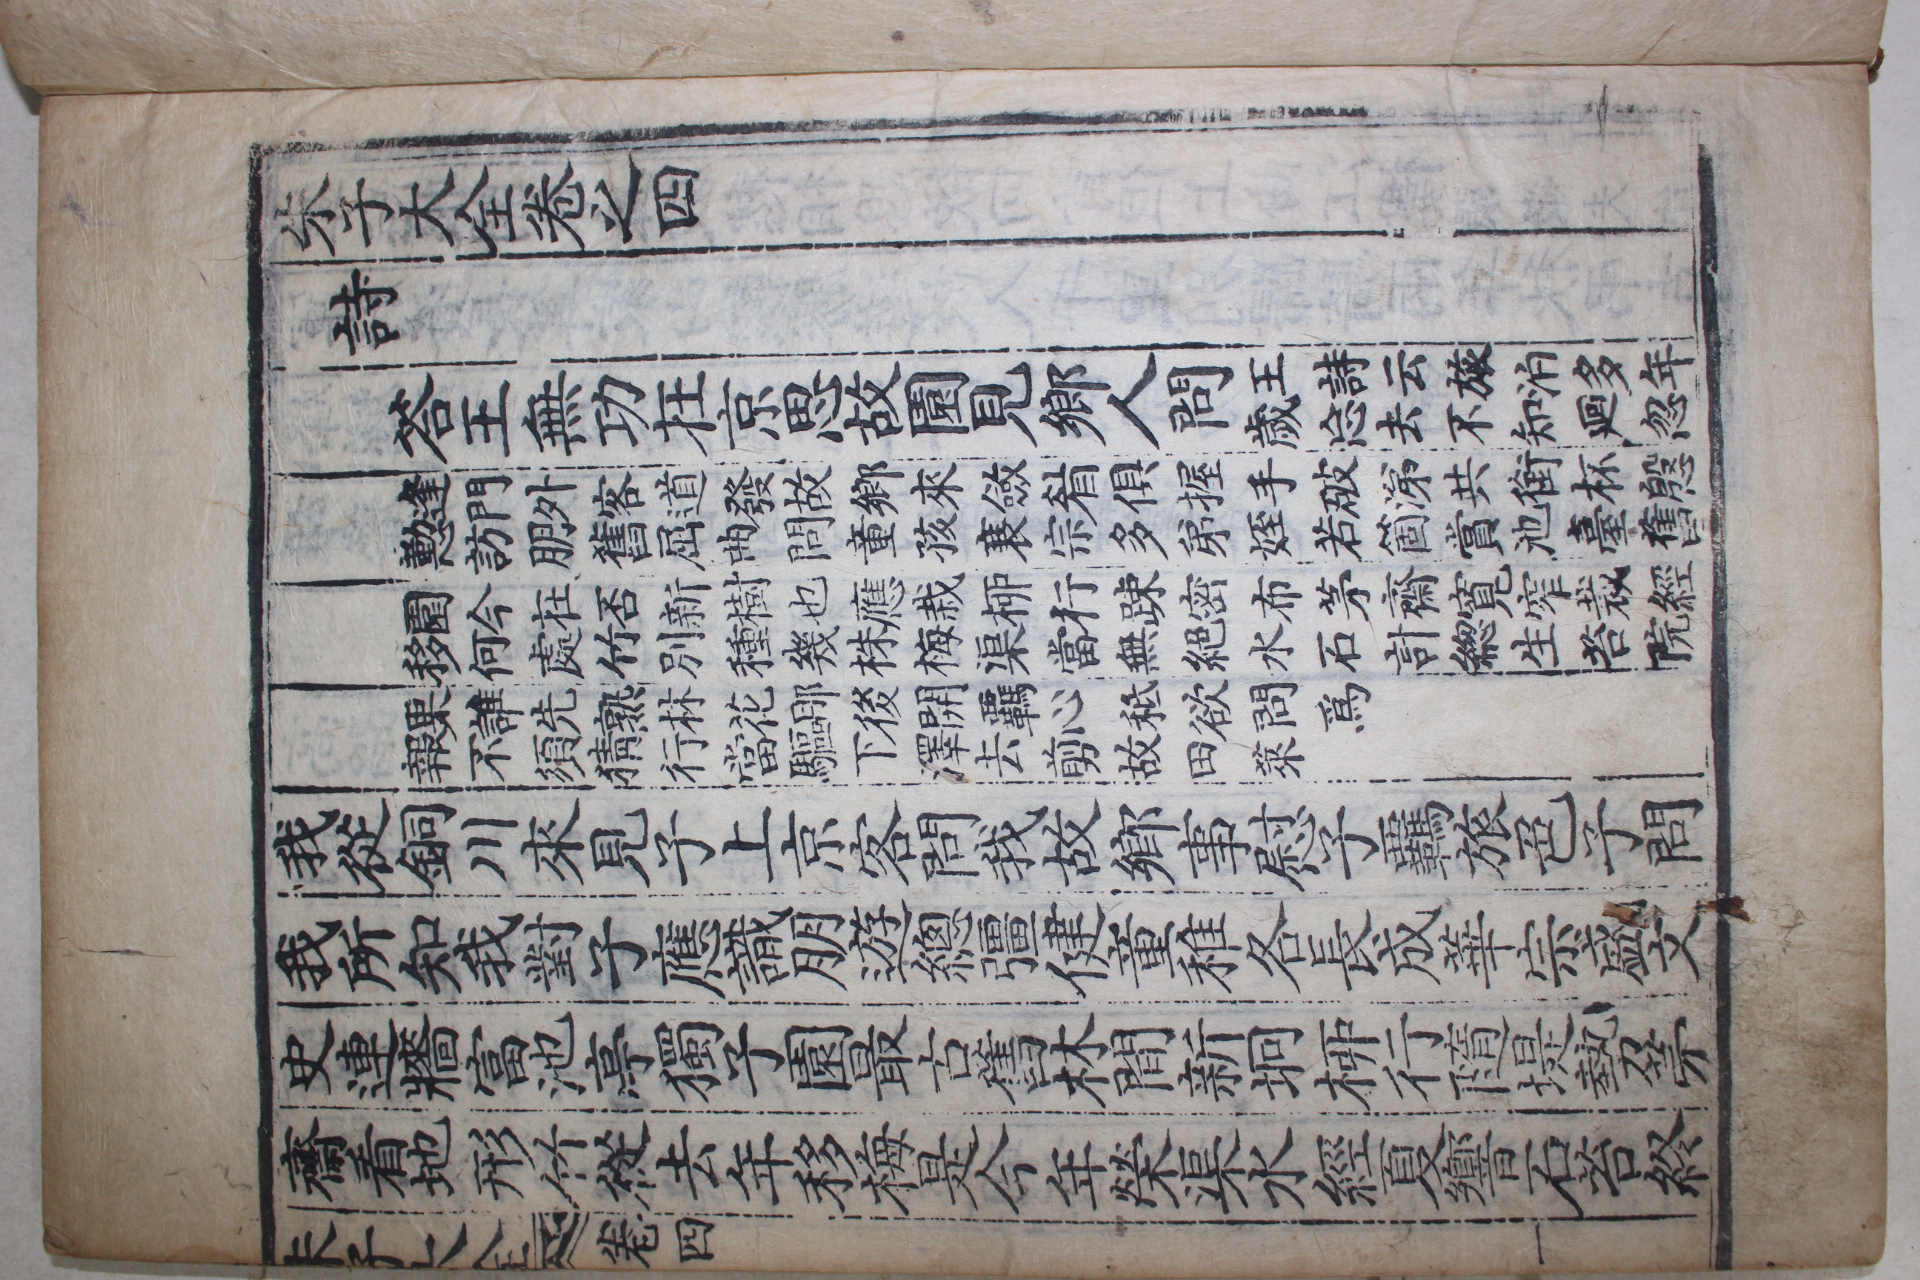 朱子大全卷之四
詩
答王無功在京思故園見鄉人問
王詩云旅泊多年
歲忘去不知廻忽
逢門外客道發故鄉來斂眉俱握手破涕共銜杯慇
懃訪朋舊屈曲問童孩衰宗多弟姪若箇賞池臺舊
園今在否新樹也應栽柳行疎密布茅齋寬窄裁經
移何處竹別種幾株梅渠當無絕水石計總生苔院
果誰先熟林花那後開羈心秪欲問爲
報不須猜行當驅下澤去剪故田萊
我從銅川來見子上京客問我故鄉事慰子羈旅色子問
我所知我對子應識朋遊總彊健童稚各長成華宗盛文
史連牆富池亭獨子園最古舊林間新坰柳行隨堤勢茅
齋看地形竹從去年移梅是今年榮渠水經夏響石苔終
朱子大全 卷四 一